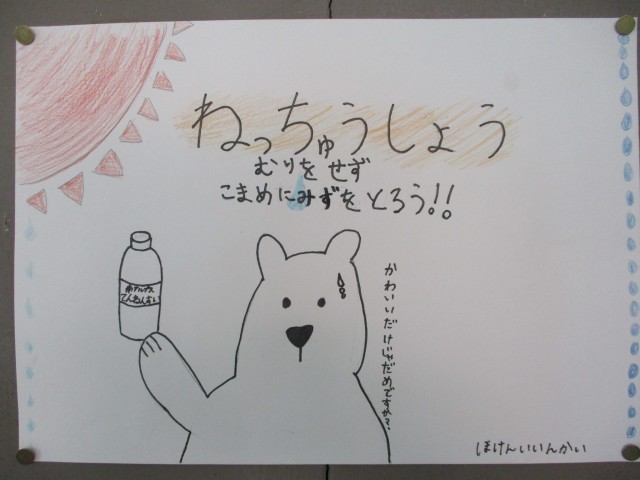 ねっちゅうしょう
むりをせず
こまめにみずをとろう!!
かわいいだけじゃだめですか?
ほけんいいんかい